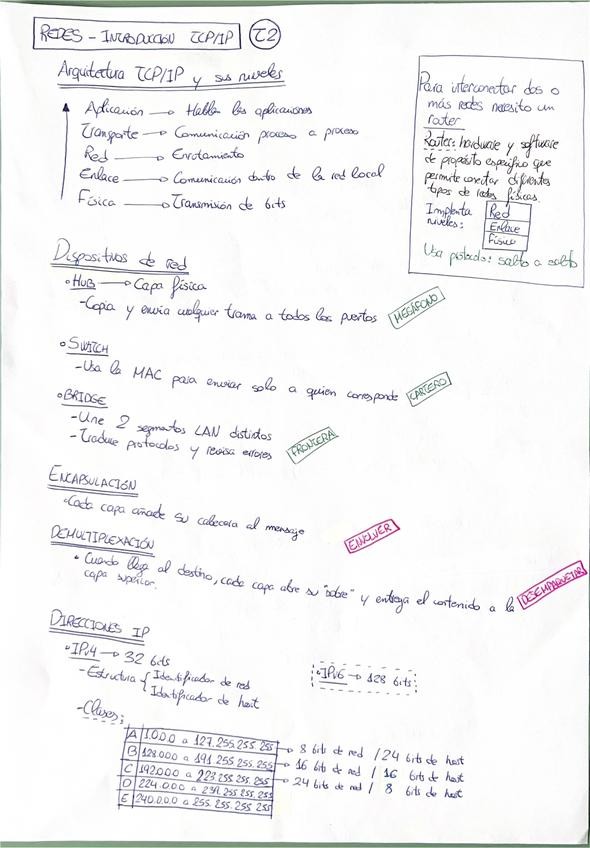 REDES - INTRODUCCIÓN TCP/IP T2
Arquitectura TCP/IP y sus niveles
Aplicación → Hablan las aplicaciones
Transporte → Comunicación proceso a proceso
Red → Enrutamiento
Enlace → Comunicación dentro de la red local
Física → Transmisión de bits
Para interconectar dos o
más redes necesito un
router
Router: hardware y software
de propósito específico que
permite conectar diferentes
tipos de redes físicas.
Implementa
niveles:
Red
Enlace
Físico
Usa protocolo: salto a salto
Dispositivos de red
• HUB → Capa física
- Copia y envia cualquier trama a todos los puertos MEGÁFONO
• SWITCH
- Usa la MAC para enviar solo a quien corresponde CARTERO
• BRIDGE
- Une 2 segmentos LAN distintos
- Traduce protocolos y revisa errores FRONTERA
ENCAPSULACIÓN
• Cada capa añade su cabecera al mensaje ENVOLVER
DEMULTIPLEXACIÓN
• Cuando llega al destino, cada capa abre su "sobre" y entrega el contenido a la DESEMPAQUETAR
capa superior.
DIRECCIONES IP
• IPv4 → 32 bits
- Estructura { Identificador de red
Identificador de host
• IPv6 → 128 bits
- Clases:
A 1.0.0.0 a 127.255.255.255 → 8 bits de red / 24 bits de host
B 128.0.0.0 a 191.255.255.255 → 16 bits de red / 16 bits de host
C 192.0.0.0 a 223.255.255.255 → 24 bits de red / 8 bits de host
D 224.0.0.0 a 239.255.255.255
E 240.0.0.0 a 255.255.255.255